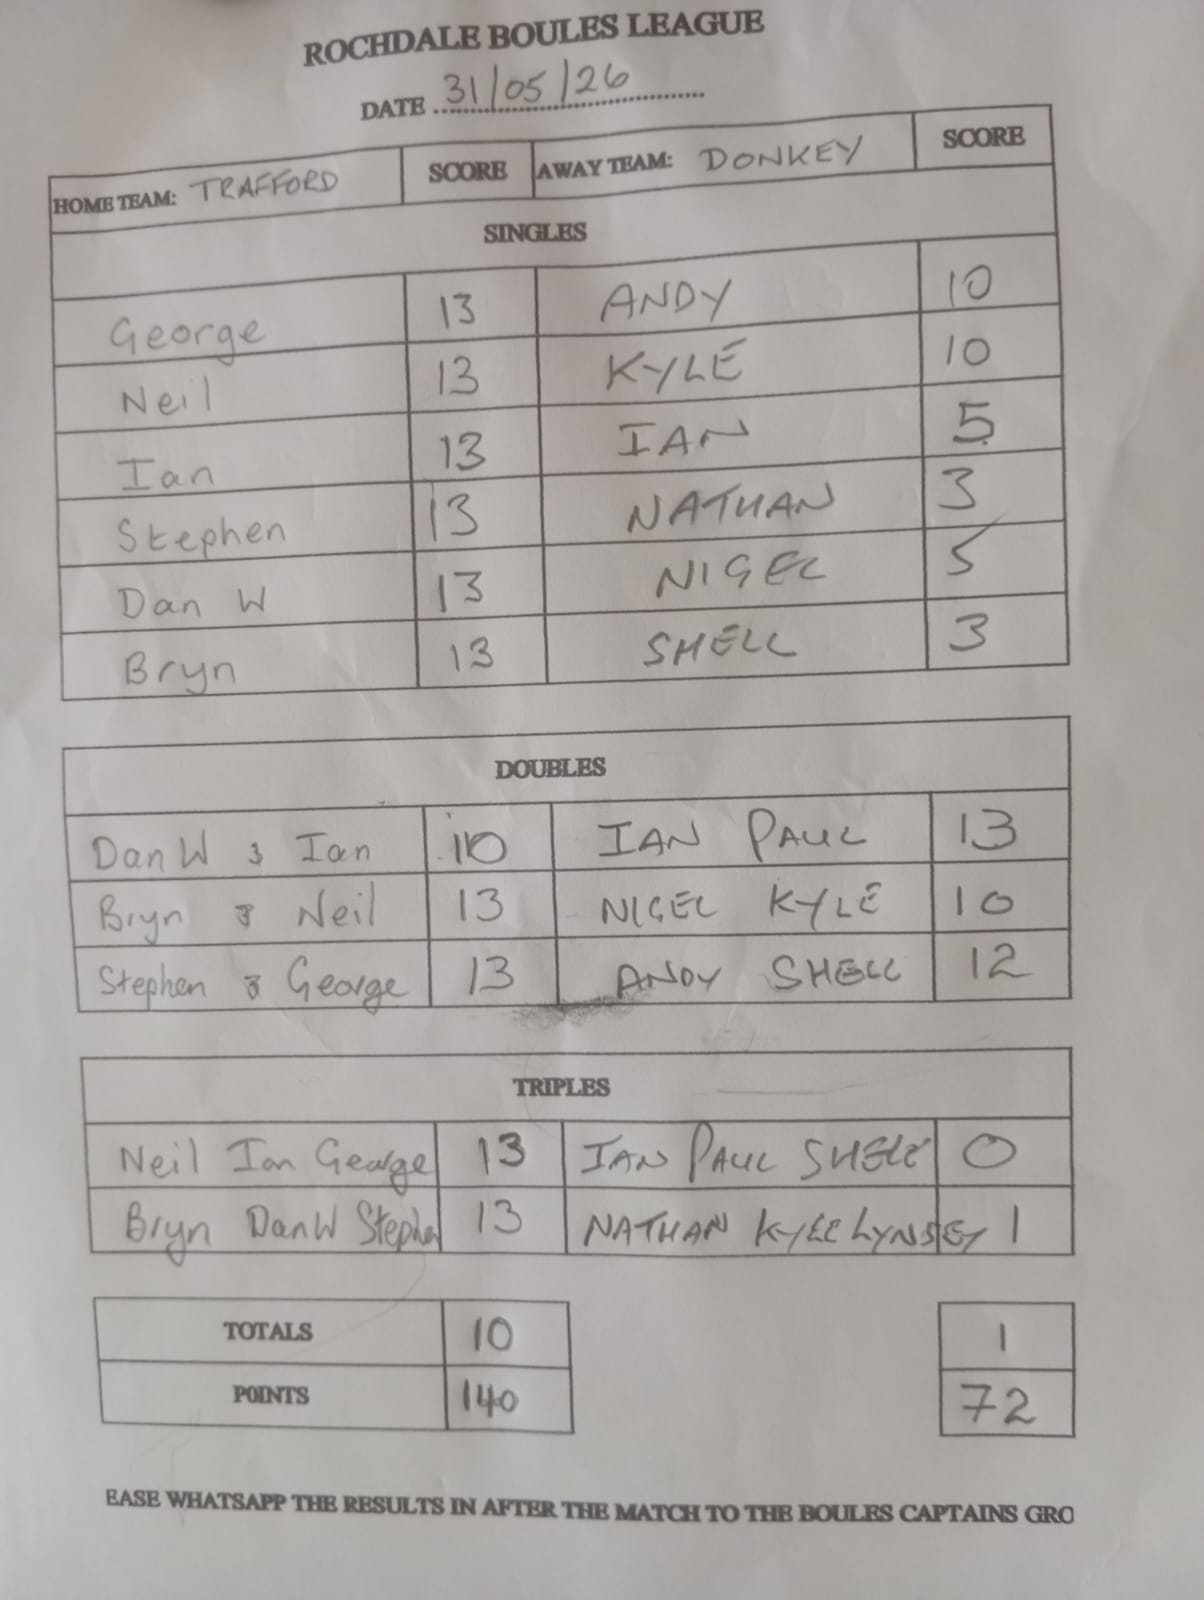 ROCHDALE BOULES LEAGUE
DATE 31/05/26
HOME TEAM: TRAFFORD SCORE AWAY TEAM: DONKEY SCORE
SINGLES
George 13 ANDY 10
Neil 13 KYLE 10
Ian 13 IAN 5
Stephen 13 NATHAN 3
Dan W 13 NIGEL 5
Bryn 13 SHELL 3
DOUBLES
Dan W & Ian 10 IAN PAUL 13
Bryn & Neil 13 NIGEL KYLE 10
Stephen & George 13 ANDY SHELL 12
TRIPLES
Neil Ian George 13 IAN PAUL SHELL 0
Bryn Dan W Stephen 13 NATHAN KYLE LYNSEY 1
TOTALS 10 1
POINTS 140 72
EASE WHATSAPP THE RESULTS IN AFTER THE MATCH TO THE BOULES CAPTAINS GRO